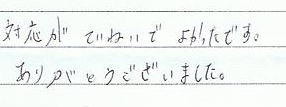 対応が ていねいで よかったです。
ありがとうございました。